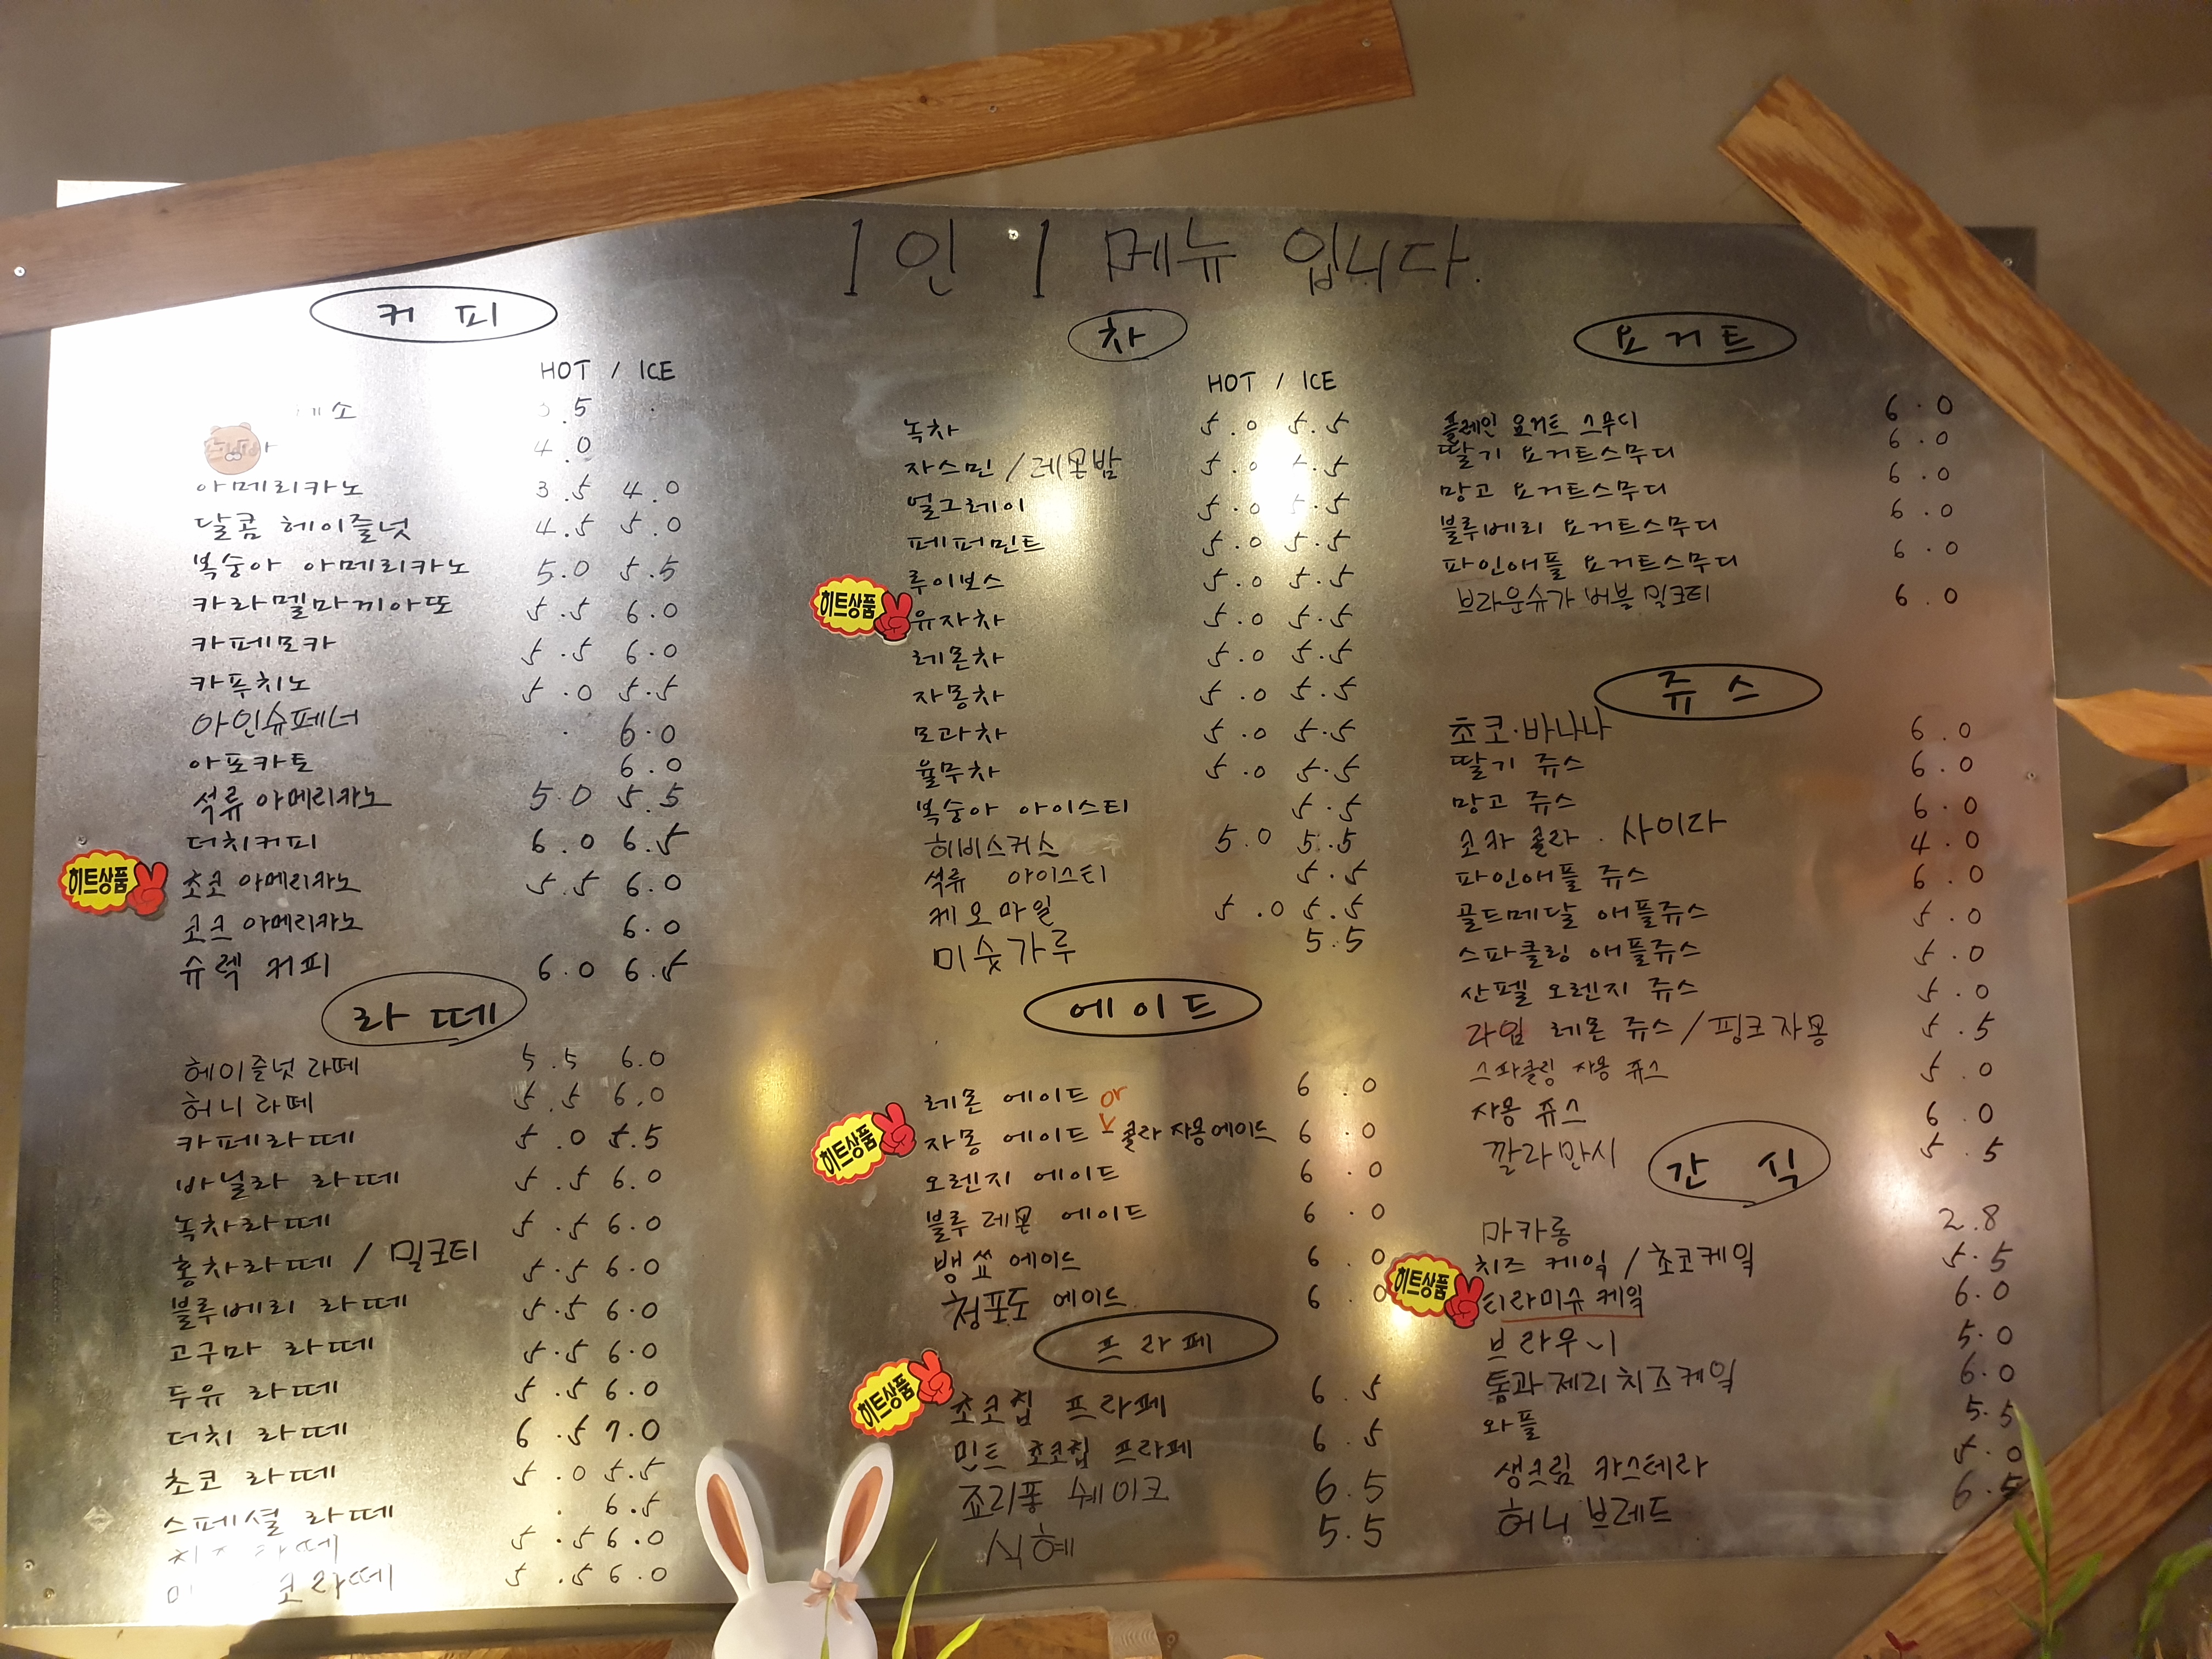 1인 1 메뉴 입니다.
커피
HOT / ICE
.5
4.0
아메리카노 3.5 4.0
달콤 헤이즐넛 4.5 5.0
복숭아 아메리카노 5.0 5.5
카라멜마끼아또 5.5 6.0
카페모카 5.5 6.0
카푸치노 5.0 5.5
아인슈페너 6.0
아포카토 6.0
석류 아메리카노 5.0 5.5
더치커피 6.0 6.5
히트상품
초코 아메리카노 5.5 6.0
코크 아메리카노 6.0
슈렉 커피 6.0 6.5
라떼
헤이즐넛 라떼 5.5 6.0
허니 라떼 5.5 6.0
카페라떼 5.0 5.5
바닐라 라떼 5.5 6.0
녹차라떼 5.5 6.0
홍차라떼 / 밀크티 5.5 6.0
블루베리 라떼 5.5 6.0
고구마 라떼 5.5 6.0
두유 라떼 5.5 6.0
더치 라떼 6.5 7.0
초코 라떼 5.0 5.5
스페셜 라떼 6.5
라떼 5.5 6.0
코라떼 5.5 6.0
차
HOT / ICE
녹차 5.0 5.5
자스민 / 레몬밤 5.0 .5
얼그레이 5.0 5.5
페퍼민트 5.0 5.5
루이보스 5.0 5.5
히트상품
유자차 5.0 5.5
레몬차 5.0 5.5
자몽차 5.0 5.5
모과차 5.0 5.5
율무차 5.0 5.5
복숭아 아이스티 5.5
히비스커스 5.0 5.5
석류 아이스티 5.5
케모마일 5.0 5.5
미숫가루 5.5
에이드
레몬 에이드 6.0
히트상품
자몽 에이드 or 콜라 자몽에이드 6.0
오렌지 에이드 6.0
블루 레몬 에이드 6.0
뱅쑈 에이드 6.0
청포도 에이드 6.0
프라페
히트상품
초코칩 프라페 6.5
민트 초코칩 프라페 6.5
죠리퐁 쉐이크 6.5
식혜 5.5
요거트
플레인 요거트 스무디 6.0
딸기 요거트스무디 6.0
망고 요거트스무디 6.0
블루베리 요거트스무디 6.0
파인애플 요거트스무디 6.0
브라운슈가 버블 밀크티 6.0
쥬스
초코·바나나 6.0
딸기 쥬스 6.0
망고 쥬스 6.0
코카 콜라 . 사이다 4.0
파인애플 쥬스 6.0
골드메달 애플쥬스 5.0
스파클링 애플쥬스 5.0
산펠 오렌지 쥬스 5.0
라임 레몬 쥬스 / 핑크자몽 5.5
스파클링 자몽 쥬스 5.0
자몽 쥬스 6.0
깔라만시 5.5
간식
마카롱 2.8
치즈 케익 / 초코케익 5.5
히트상품
티라미슈 케익 6.0
브라우니 5.0
톰과제리치즈케익 6.0
와플 5.5
생크림 카스테라 5.0
허니 브레드 6.5